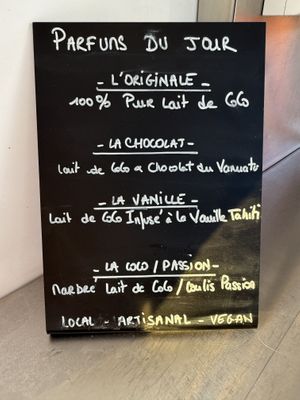 PARFUMS DU JOUR
- L'ORIGINALE -
100% Pur Lait de GG
- LA CHOCOLAT -
Lait de GG & Chocolat du Vanuatu
- LA VANILLE -
Lait de GG Infusé à la Vanille Tahiti
- LA COCO / PASSION -
Marbré Lait de CoCo / Coulis Passion
LOCAL - ARTISANAL - VEGAN